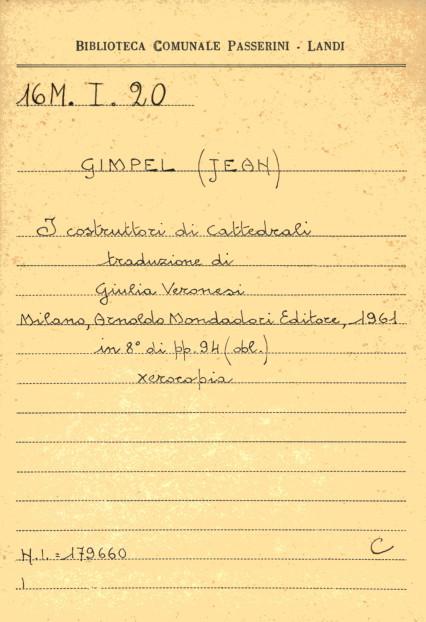 BIBLIOTECA COMUNALE PASSERINI - LANDI
16M. I. 20
GIMPEL (JEAN)
I costruttori di Cattedrali
traduzione di
Giulia Veronesi
Milano, Arnoldo Mondadori Editore, 1961
in 8° di pp. 94 (obl.)
xerocopia
N.I. = 179660
C
1